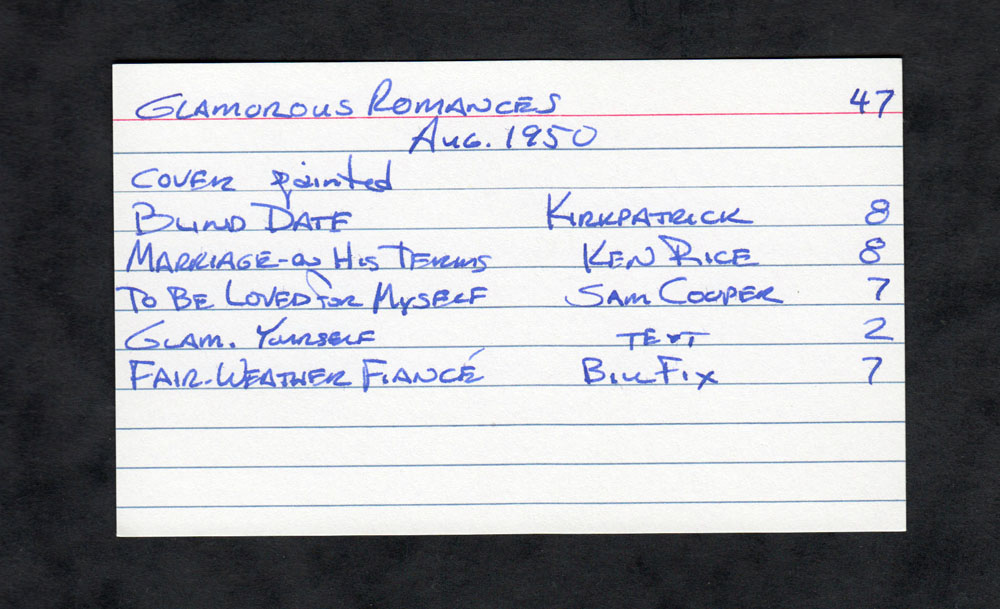 GLAMOROUS ROMANCES 47
AUG. 1950
COVER painted
BLIND DATE KIRKPATRICK 8
MARRIAGE-ON HIS TERMS KEN RICE 8
TO BE LOVED FOR MYSELF SAM COOPER 7
GLAM. YOURSELF TEXT 2
FAIR-WEATHER FIANCÉ BILL FIX 7